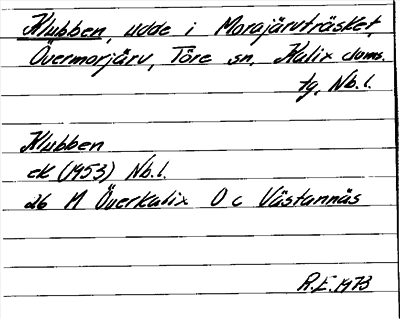 Klubben, udde i Morajärvträsket,
Övermorjärv, Töre sn, Kalix doms.
tg, Nb. l.
Klubben
ek (1953) Nb. l.
26 M Överkalix O c Västannäs
R.E. 1973